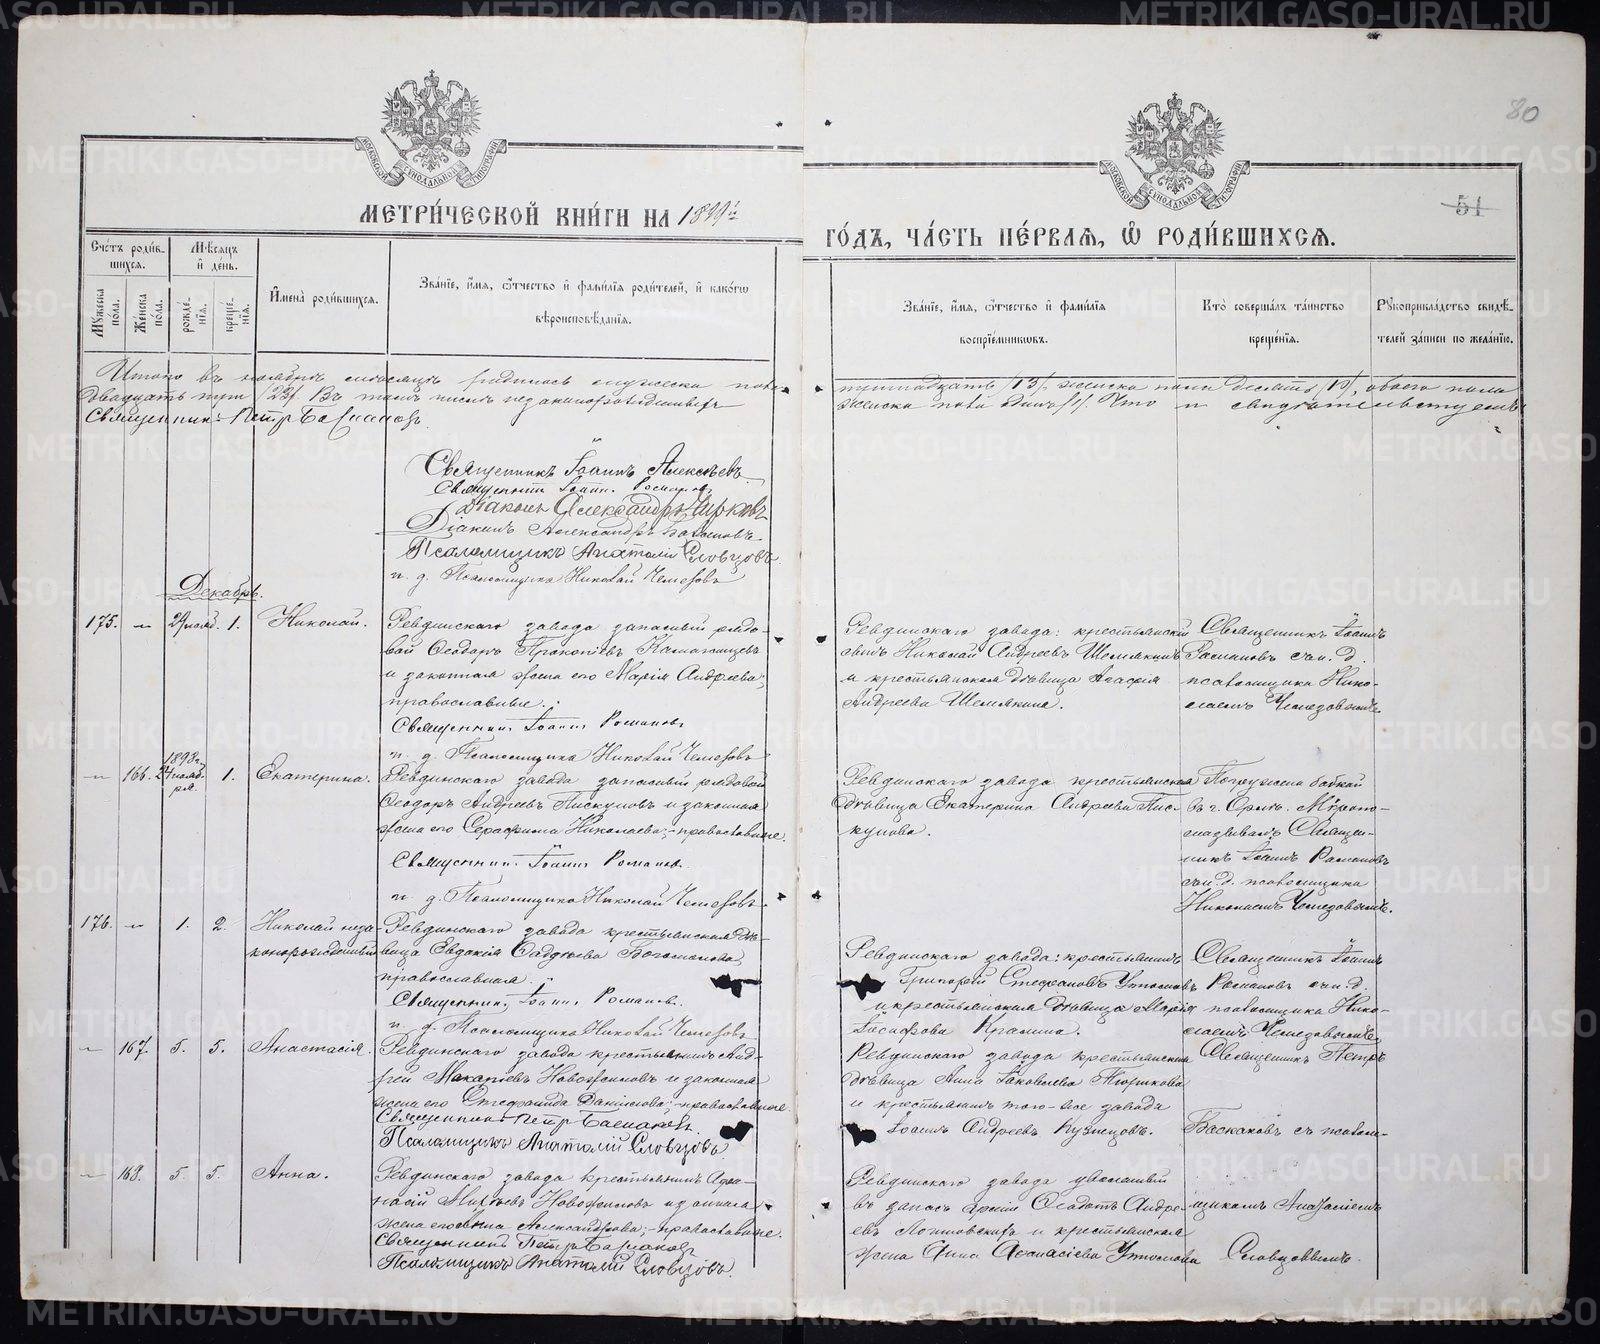 80
51
МЕТРИ́ЧЕСКОЙ КНИ́ГИ НА 1899 й
ГО́ДЪ, ЧА́СТЬ ПЕ́РВАЯ, Ѡ҆ РОДИ́ВШИХСЯ.
Сче́тъ роди́вшихся.
Мѣ́сяцъ и҆ де́нь.
Мꙋ́жеска по́ла.
Же́нска по́ла.
рожде́нїѧ.
креще́нїѧ.
И҆мена̀ роди́вшихсѧ.
Зва́нїе, и҆́мѧ, ѻ҆́тчество и҆ фами́лїѧ роди́телей, и҆ како́гѡ
вѣроисповѣ́данїѧ.
Зва́нїе, и҆́мѧ, ѻ҆́тчество и҆ фами́лїѧ
воспрїе́мникѡвъ.
Кто̀ соверша́лъ та́инство
креще́нїѧ.
Рꙋкоприкла́дство свидѣ́телей за́писи по жела́нїю.
Итого въ ноябрѣ мѣсяцѣ родилось мужеска пола
тринадцать /13/ женска пола десять /10/, обоего пола
двадцать три /23/ Въ томъ числѣ незаконорожденныхъ
женска пола одинъ /1/. Что и свидѣтельствуемъ
Священникъ Петръ Баскаковъ
Священникъ Іоаннъ Алексѣевъ.
Священникъ Іоаннъ Романовъ
Діаконъ Александръ Чирковъ
Діаконъ Александръ
Псаломщикъ Анатолій Словцовъ
и. д. Псаломщика Николай Чемезовъ
Декабрь.
175. — 29 нояб. 1. Николай.
Ревдинскаго завода запасный рядовой Ѳеодоръ Прокопіевъ
и законная жена его Марія Андреева;
православные.
Священникъ Іоаннъ Романовъ
и. д. Псаломщика Николай Чемезовъ
Ревдинскаго завода: крестьянскій
сынъ Николай Андреевъ Шемякинъ
и крестьянская дѣвица Агафія
Андреева Шемякина.
Священникъ Іоаннъ
Романовъ съ и. д.
псаломщика Николаемъ Чемезовымъ
— 166. 1898 г. 24 нояб. 1. Екатерина.
Ревдинскаго завода запасный рядовой
Ѳеодоръ Андреевъ Пискуновъ и законная
жена его Серафима Николаева; православные.
Священникъ Іоаннъ Романовъ.
и. д. Псаломщика Николай Чемезовъ.
Ревдинскаго завода крестьянская
дѣвица Екатерина Андреева Пискунова.
Погружена бабкой
Священникъ Іоаннъ Романовъ
съ и. д. псаломщика
Николаемъ Чемезовымъ.
176. — 1. 2. Николай незаконорожденный
Ревдинскаго завода крестьянская дѣвица Евдокія
православная.
Священникъ Іоаннъ Романовъ.
и. д. Псаломщика Николай Чемезовъ
Ревдинскаго завода: крестьянинъ
Григорій Стефановъ
и крестьянская дѣвица Марія
Іосифова
Священникъ Іоаннъ
Романовъ съ и. д.
псаломщика Николаемъ Чемезовымъ
— 167. 5. 5. Анастасія.
Ревдинскаго завода крестьянинъ Андрей Новоженовъ и законная
жена его Стефанида Данилова; православные.
Священникъ Петръ Баскаковъ.
Псаломщикъ Анатолій Словцовъ
Ревдинскаго завода крестьянская
дѣвица Анна Іаковлева
и крестьянинъ того-же завода
Іоаннъ Андреевъ Кузнецовъ.
Священникъ Петръ
Баскаковъ съ псаломщикомъ Анатоліемъ
Словцовымъ.
— 168. 5. 5. Анна.
Ревдинскаго завода крестьянинъ
Новоженовъ и законная
жена его Александрова; православные.
Священникъ Петръ Баскаковъ
Псаломщикъ Анатолій Словцовъ.
Ревдинскаго завода уволенный
въ запасъ арміи Андреевъ и крестьянская
жена Анна Аѳанасіева